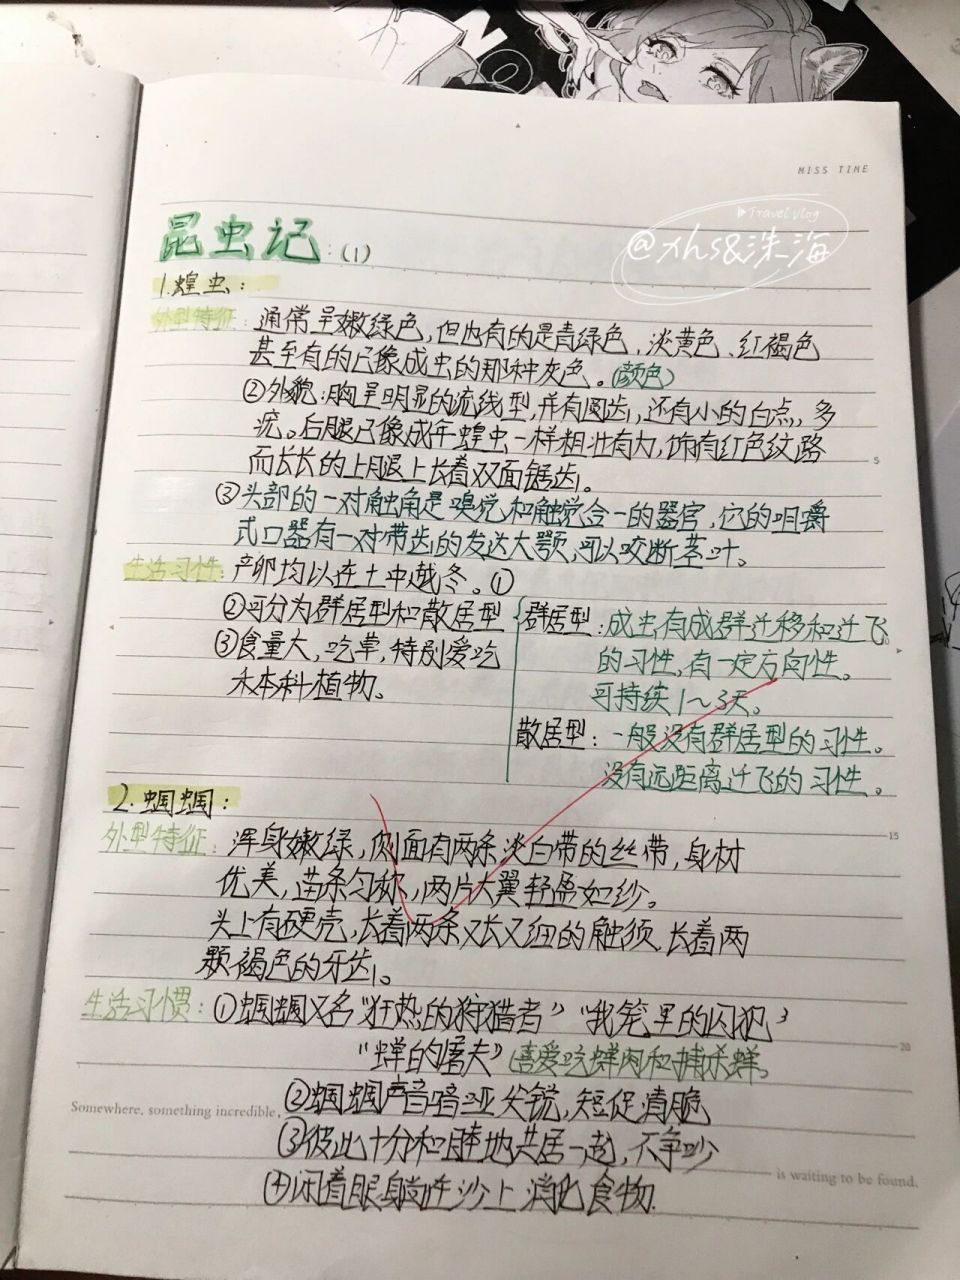 MISS TIME
Travel Vlog
@xhs&洙海
昆虫记:(1)
1.蝗虫:
外型特征:通常呈嫩绿色,但也有的是青绿色、淡黄色、红褐色
甚至有的已像成虫的那种灰色。(颜色)
②外貌:胸呈明显的流线型,并有圆齿,还有小的白点,多
疣。后腿已像成年蝗虫一样粗壮有力,饰有红色纹路
而长长的上腿上长着双面锯齿。
③头部的一对触角是嗅觉和触觉合一的器官,它的咀嚼
式口器有一对带齿的发达大颚,可以咬断茎叶。
生活习性:产卵均以在土中越冬。①
②可分为群居型和散居型
③食量大,吃草,特别爱吃
木本科植物。
群居型:成虫有成群迁移和迁飞
的习性,有一定方向性。
可持续1~3天。
散居型:一般没有群居型的习性。
没有远距离迁飞的习性。
2.蝈蝈:
外型特征:浑身嫩绿,侧面有两条淡白带的丝带,身材
优美,苗条匀称,两片大翼轻盈如纱。
头上有硬壳,长着两条又长又细的触须,长着两
颗褐色的牙齿。
生活习惯:①蝈蝈又名“狂热的狩猎者”“我笼里的囚犯”
“蝉的屠夫”(喜爱吃蝉肉和捕杀蝉。
②蝈蝈声音喑哑尖锐,短促清脆
③彼此十分和睦地共居一起,不争吵
④闭着眼身卧在沙上消化食物.
Somewhere, something incredible,
is waiting to be found.
5
15
20